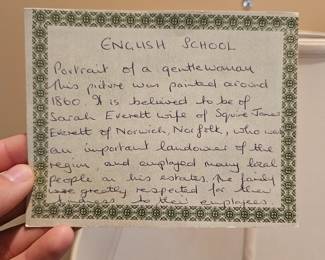 ENGLISH SCHOOL
Portrait of a gentlewoman
This picture was painted around
1860. It is believed to be of
Sarah Everett wife of Squire James
Everett of Norwich, Norfolk, who was
an important landowner of the
region and employed many local
people on his estates. The family
were greatly respected for their
kindness to their employees.